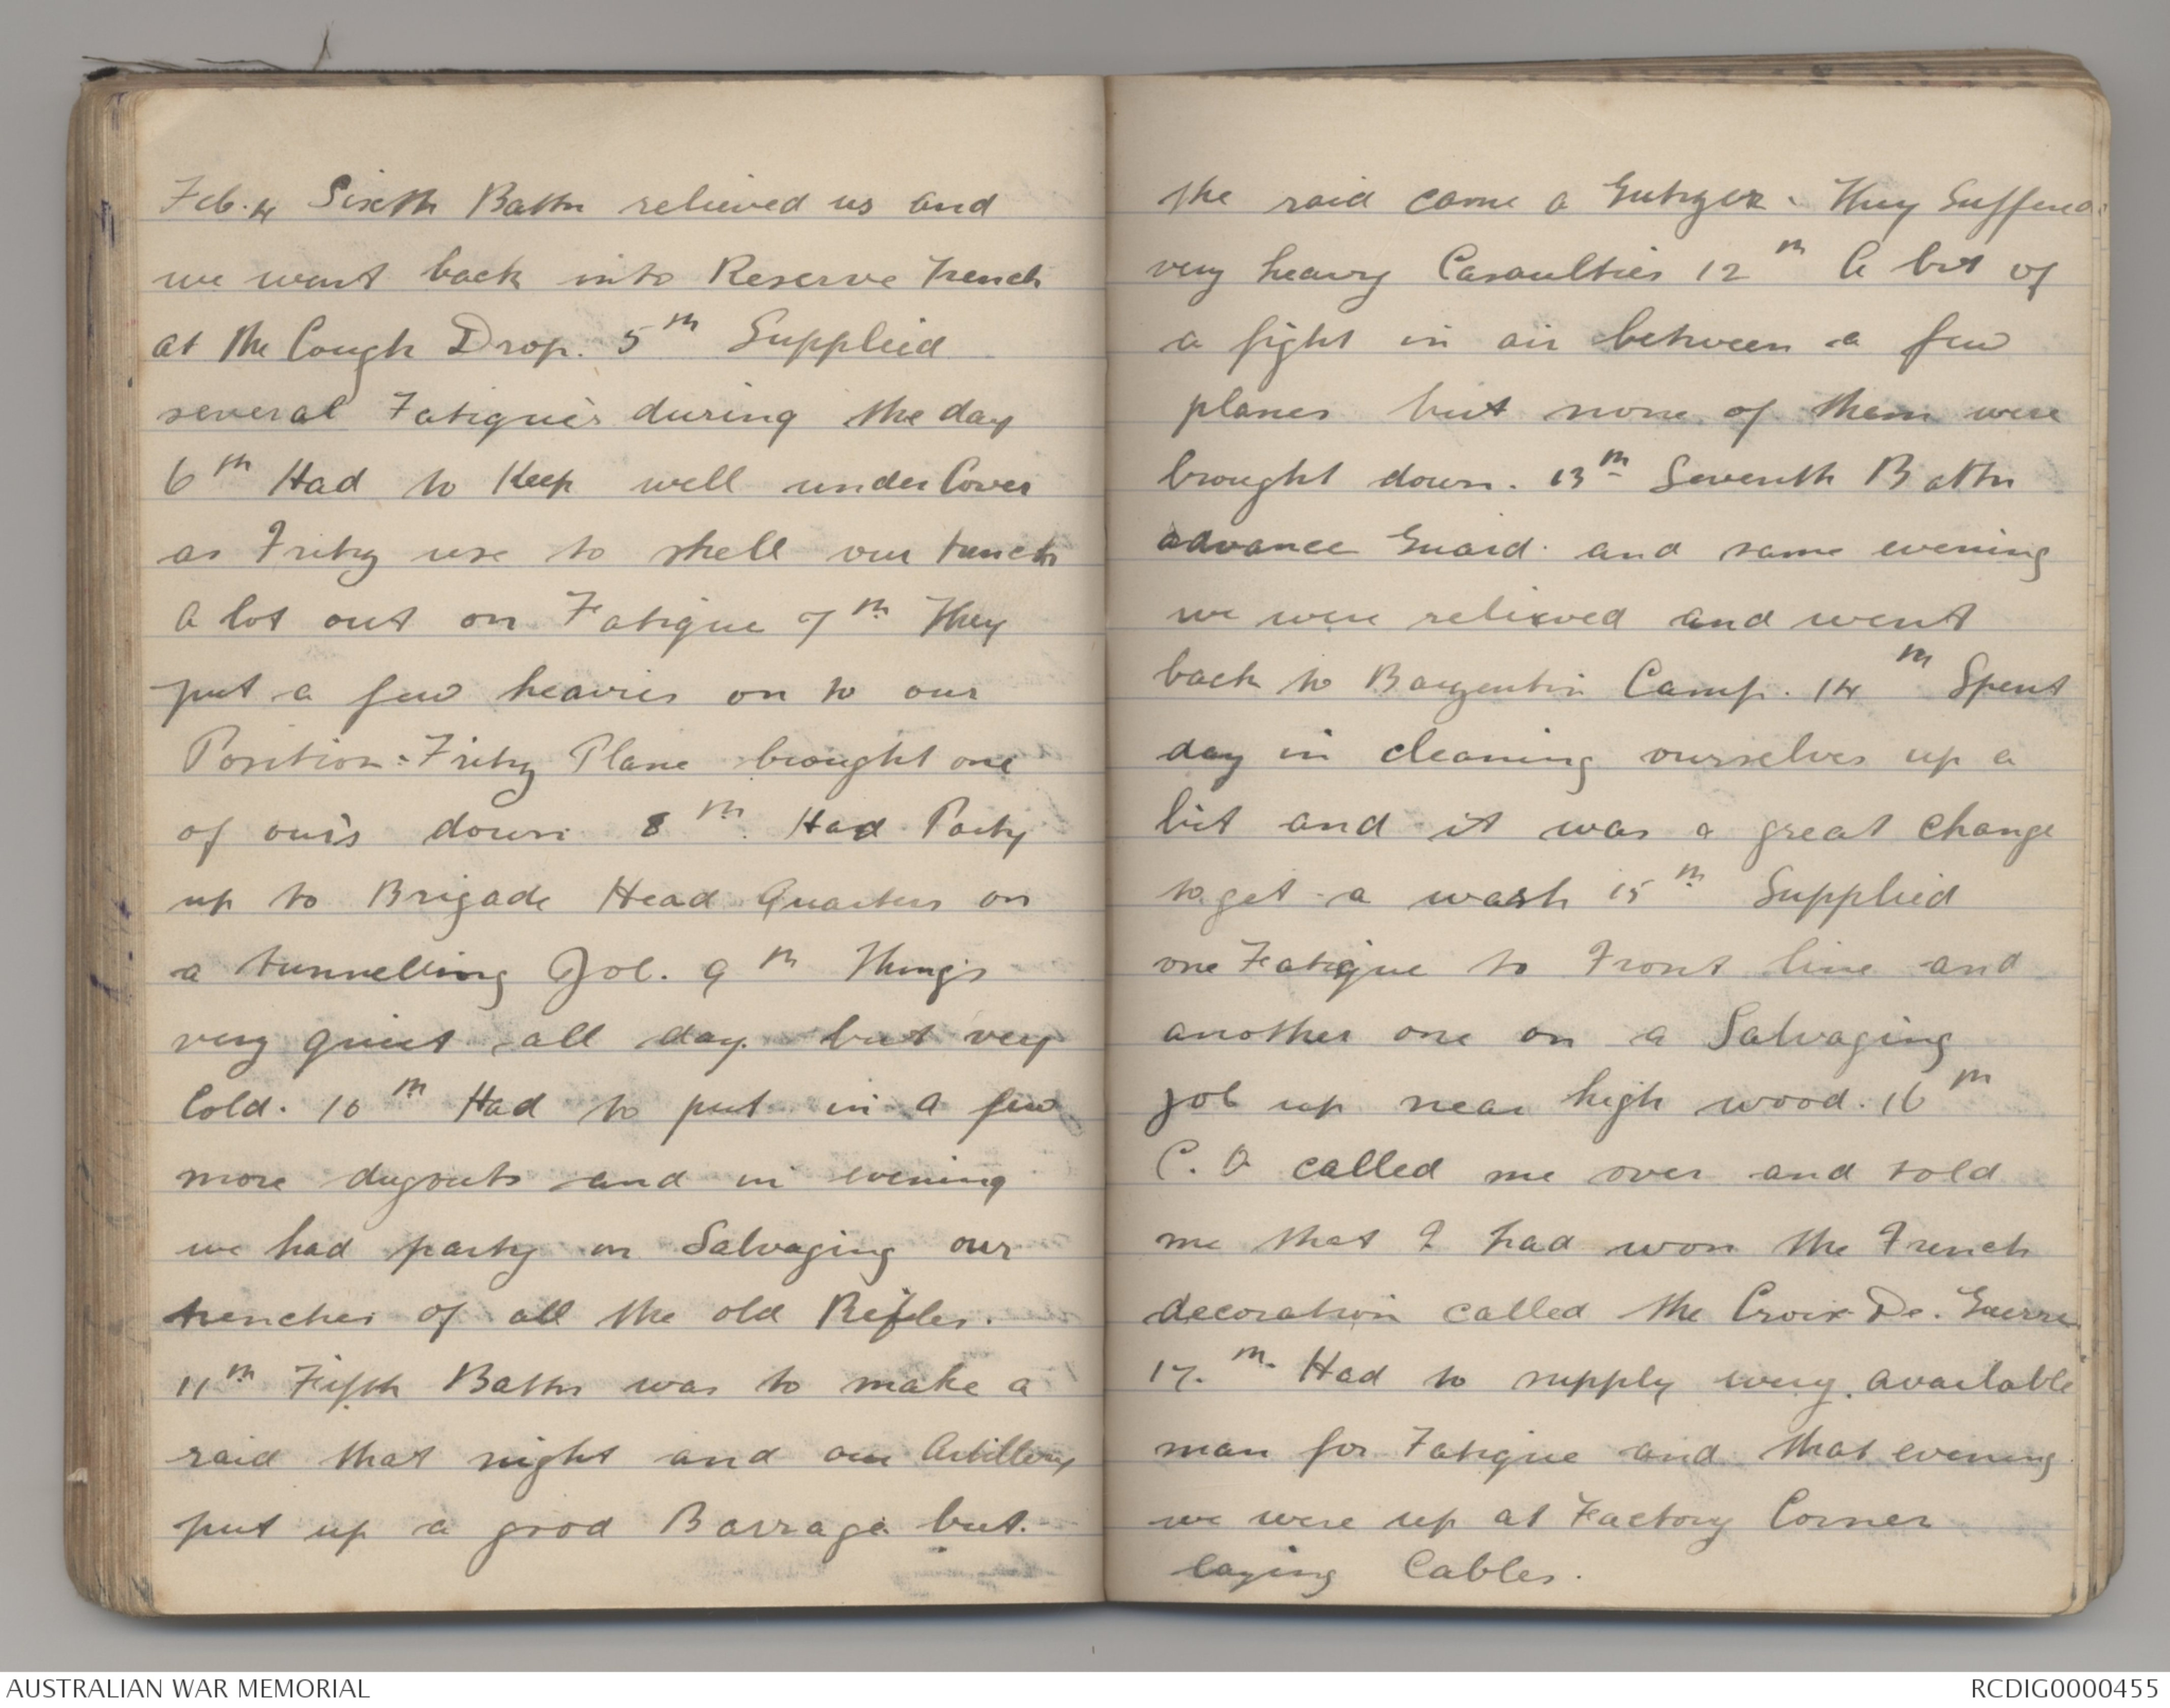 Feb. 4 Sixth Battn relieved us and
we went back into Reserve Trench
at the Cough Drop. 5th Supplied
several Fatigue's during the day
6th Had to Keep well under Cover
as Fritz use to shell our trench
a lot out on Fatigue 7th They
put a few heavies on to our
Position. Fritz Plane brought one
of our's down 8th. Had Party
up to Brigade Head Quarters on
a tunnelling Job. 9th Things
very quiet all day but very
Cold. 10th Had to put in a few
more dugouts and in evening
we had party on Salvaging our
trenches of all the old Rifles.
11th Fifth Battn was to make a
raid that night and our Artillery
put up a good Barrage but.
the raid came a Gutzer. They Suffered
very heavy Casaulties 12th A bit of
a fight in air between a few
planes but none of them were
brought down. 13th Seventh Battn
advance Guard. and same evening
we were relieved and went
back to Bazentin Camp. 14th Spent
day in cleaning ourselves up a
bit and it was a great change
to get a wash 15th Supplied
one Fatigue to Front line and
another one on a Salvaging
job up near high wood. 16th
C. O called me over and told
me that I had won the French
decoration called the Croix De. Guerre
17.th Had to supply every available
man for Fatigue and that evening
we were up at Factory Corner
laying Cables.
AUSTRALIAN WAR MEMORIAL
RCDIG0000455